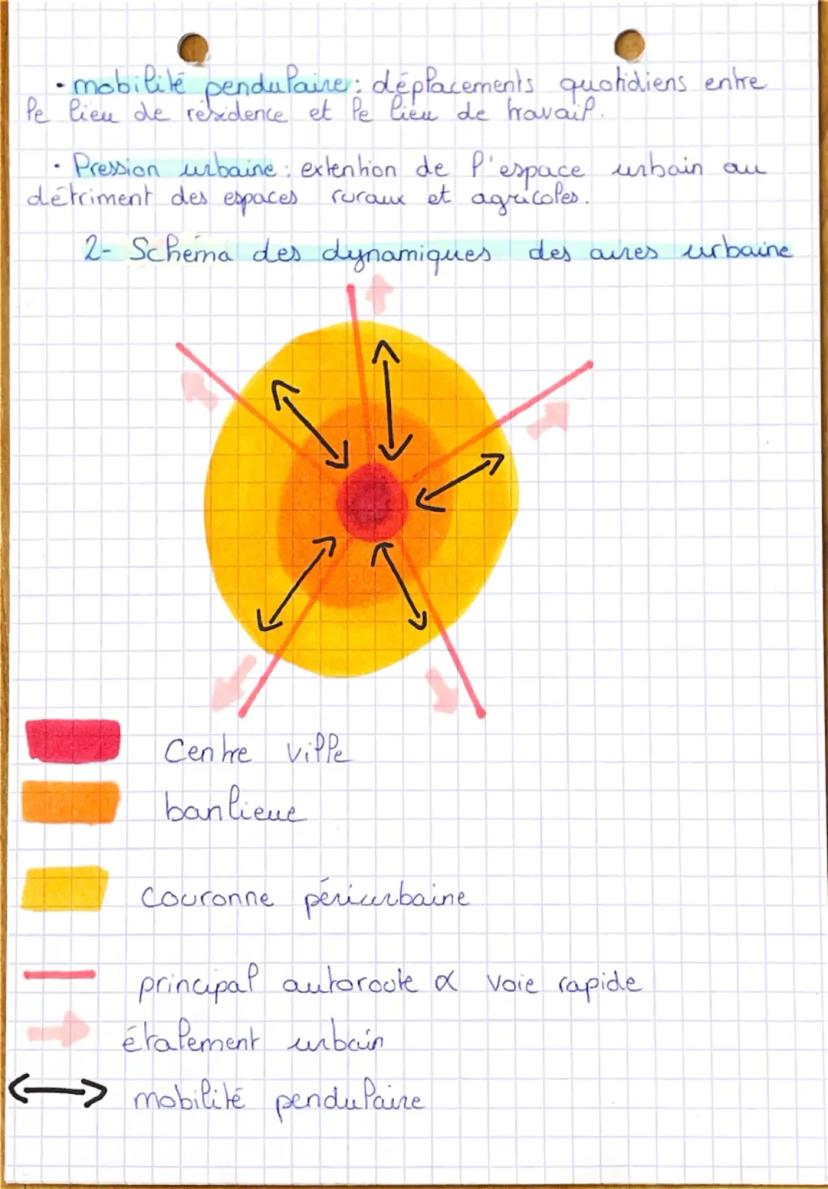 • mobilité pendulaire : déplacements quotidiens entre
le lieu de résidence et le lieu de travail.
• Pression urbaine : extention de l'espace urbain au
détriment des espaces ruraux et agricoles.
2- Schéma des dynamiques des aires urbaine
Centre ville
banlieue
couronne périurbaine
principal autoroute & voie rapide
étalement urbain
mobilité pendulaire